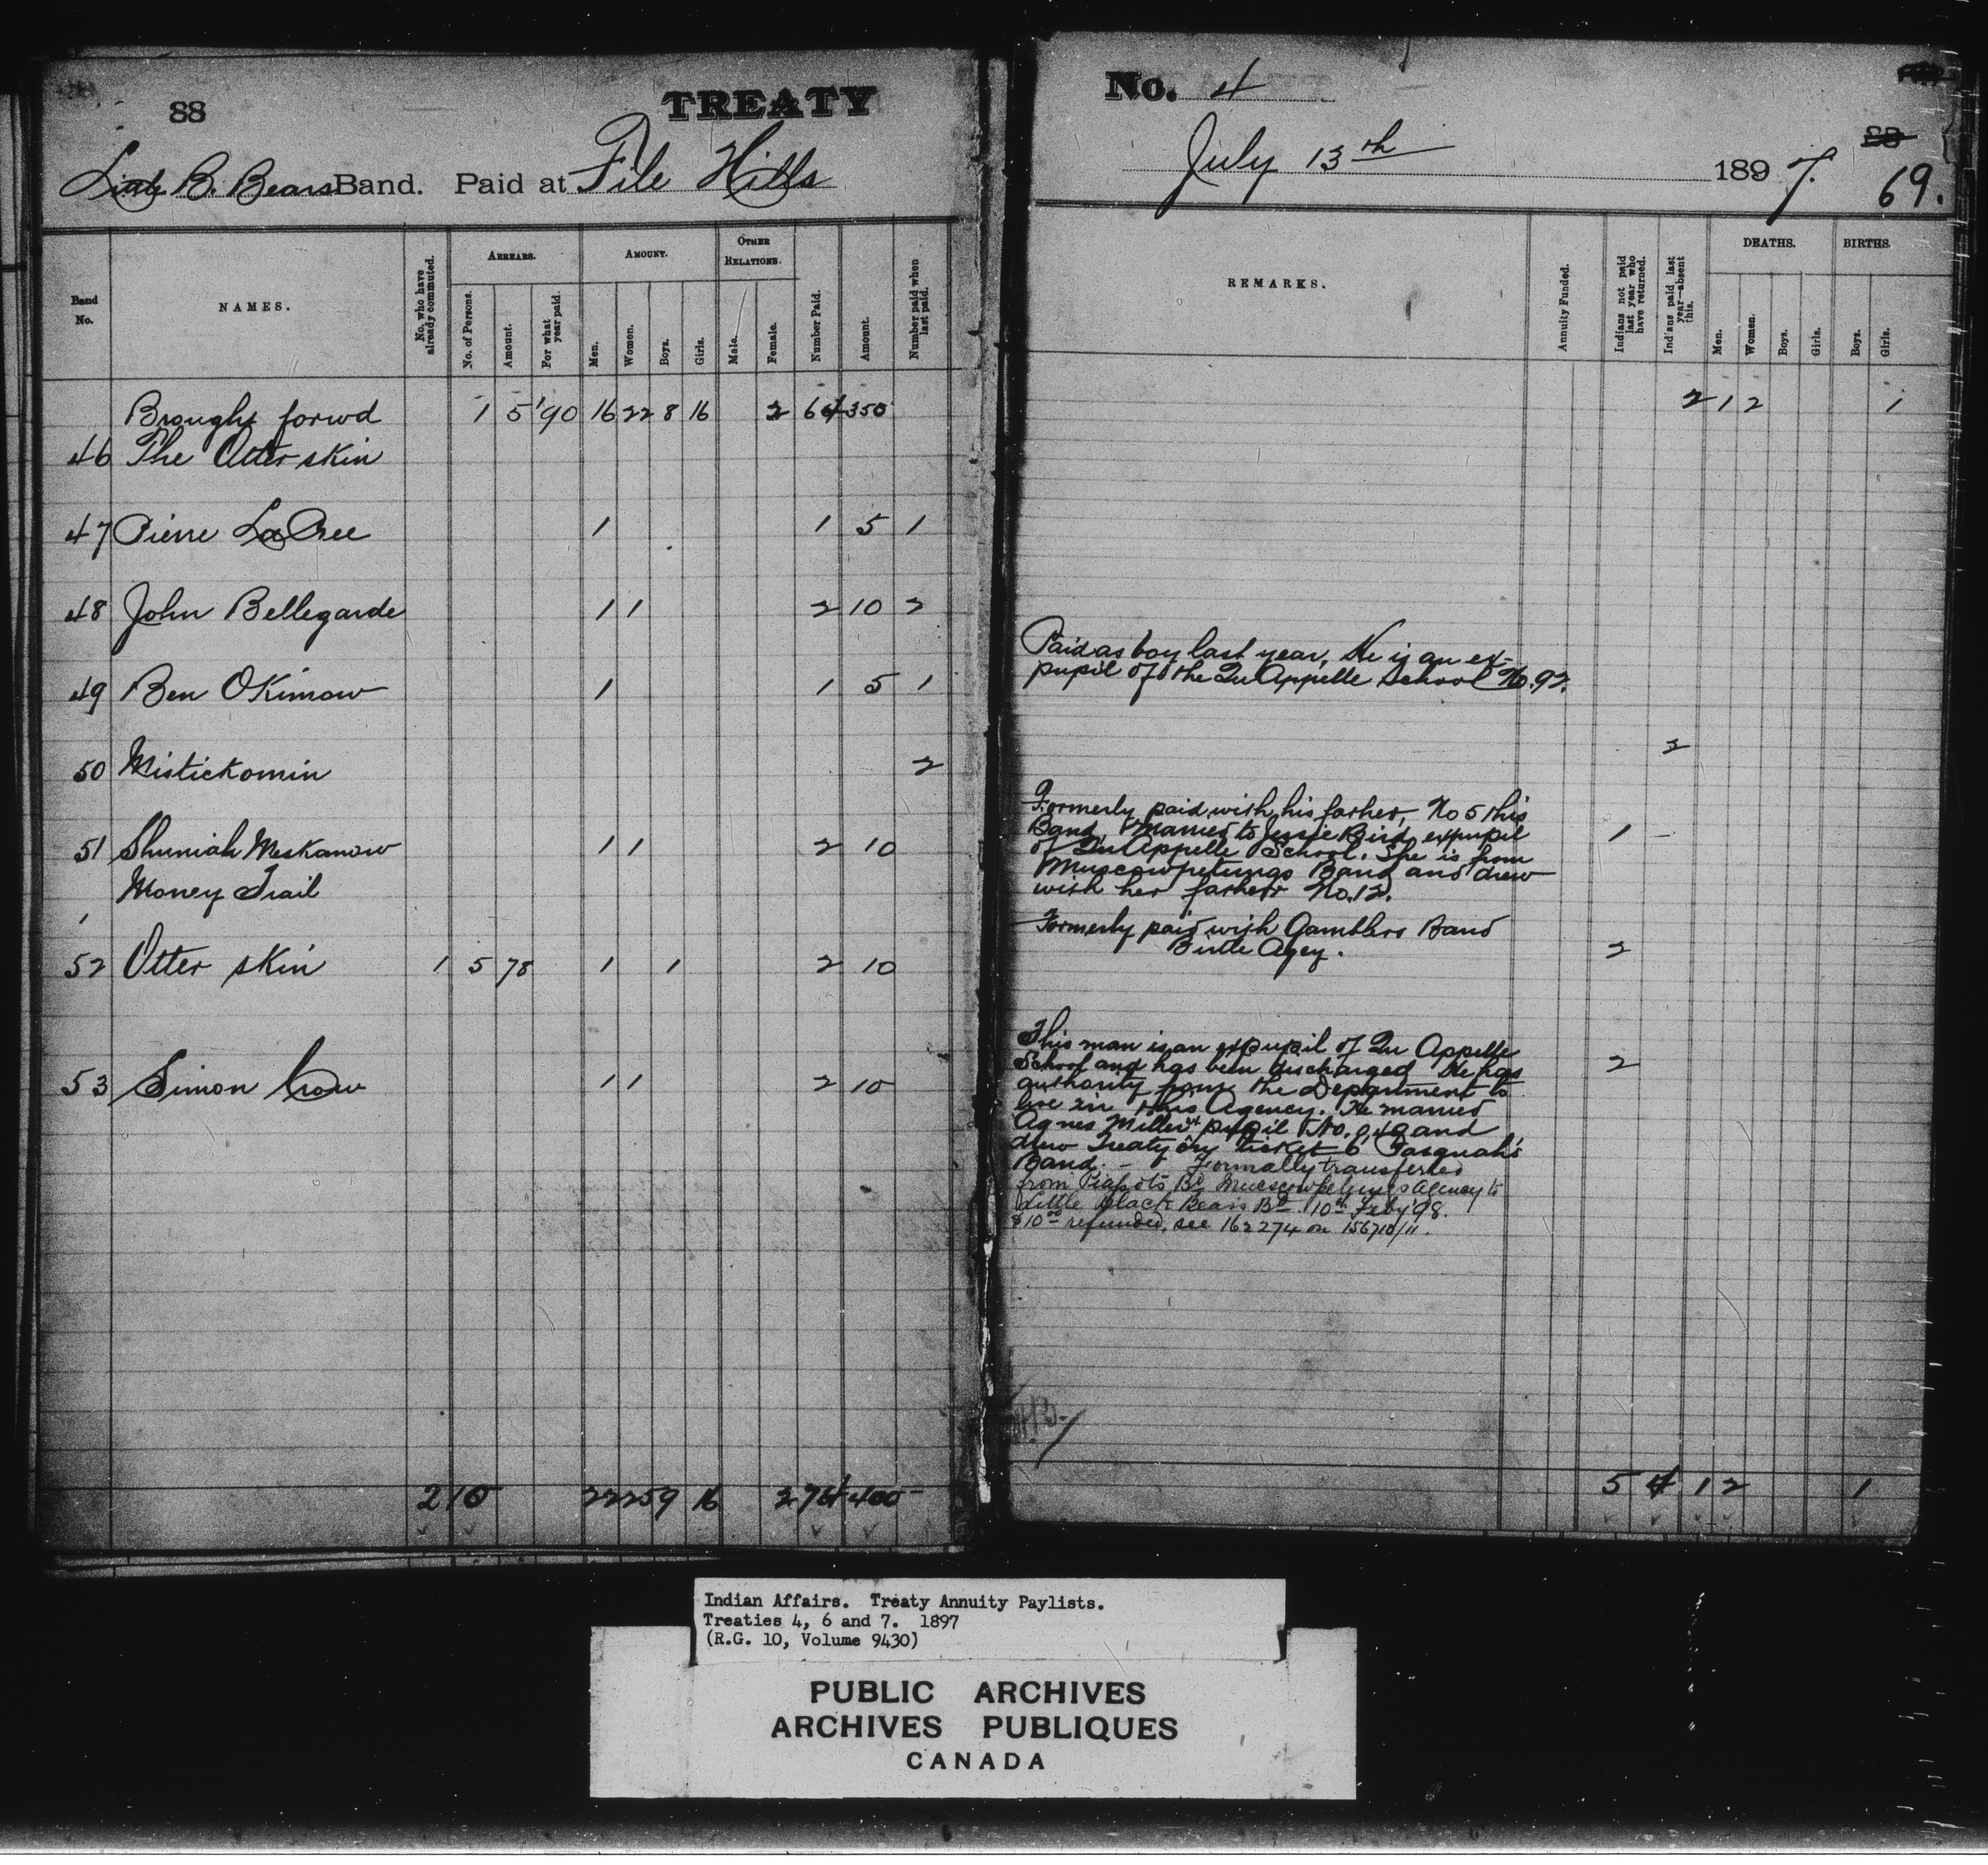 88
TREATY
Little B. Bears Band. Paid at File Hills
Band No.
NAMES.
No. who have already commuted.
ARREARS.
No. of Persons.
Amount.
For what year paid.
AMOUNT.
Men.
Women.
Boys.
Girls.
OTHER RELATIONS.
Male.
Female.
Number Paid.
Amount.
Number paid when last paid.
Brought forwd 1 5 '90 16 22 8 16 2 64 350
46 The Otter skin
47 Pierre LaCree 1 1 5 1
48 John Bellegarde 1 1 2 10 2
49 Ben OKimow 1 1 5 1
50 Mistickomin 2
51 Shuniah Meskanow 1 1 2 10
Money Trail
52 Otter skin 1 5 78 1 1 2 10
53 Simon Crow 1 1 2 10
2 10 22 25 9 16 2 74 400
No. 4
July 13th 1897.
88
69.
REMARKS.
Annuity Funded.
Indians not paid last year who have returned.
Indians paid last year—absent this.
DEATHS.
Men.
Women.
Boys.
Girls.
BIRTHS.
Boys.
Girls.
2 1 2 1
Paid as boy last year, He is an ex-
pupil of the Qu Appelle School No. 92.
2
Formerly paid with his father, No 5 this
Band, married to Jessie Bird expupil 1
of Qu Appelle School. She is from
Muscowpetungs Band and drew
with her father No. 12.
Formerly paid with Gamblers Band
Birtle Agcy. 2
This man is an expupil of Qu Appelle
School and has been discharged He has 2
authority from the Department to
live in this Agency. He married
Agnes Miller pupil No. and
drew Treaty on ticket 6 Pasquah's
Band. - Formally transferred
from Piapots Bd Muscowpetungs Agency to
Little Black Bears Bd 10th Feby '98.
$10.00 refunded, see 162274 on 156710/11.
5 4 1 2 1
Indian Affairs. Treaty Annuity Paylists.
Treaties 4, 6 and 7. 1897
(R.G. 10, Volume 9430)
PUBLIC ARCHIVES
ARCHIVES PUBLIQUES
CANADA